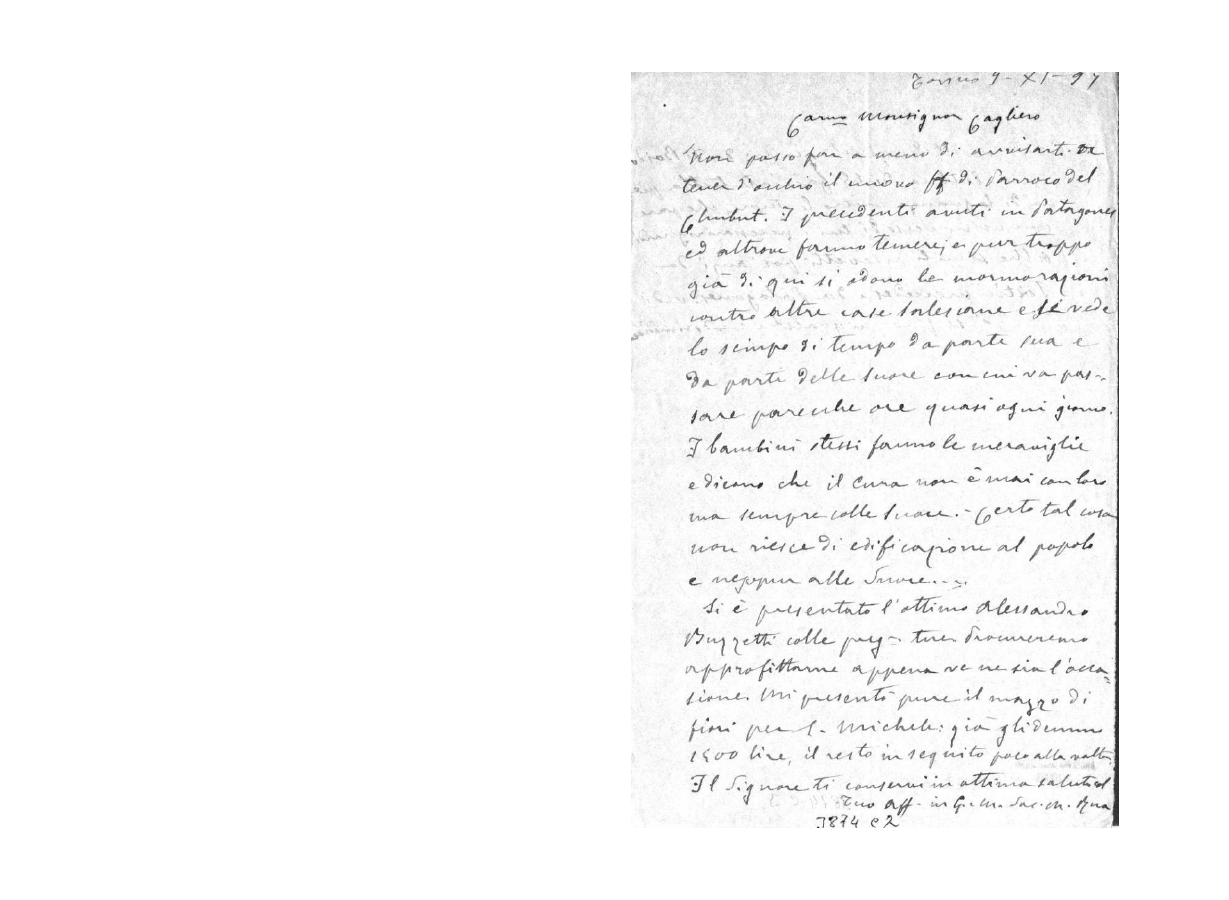 Torino 9-XI-97
Carmo Monsignor Cagliero
Non posso far a meno di avvisarti di
tener d'occhio il nuovo ff di Parroco del
Chubut. I precedenti avuti in Patagones
ed altrove fanno temere; e pur troppo
già di qui si odono le mormorazioni
contro altre case salesiane e si vede
lo sciupo di tempo da parte sua e
da parte delle Suore con cui va pas-
sare parecchie ore quasi ogni giorno.
I bambini stessi fanno le meraviglie
e dicono che il Cura non è mai con loro
ma sempre colle Suore. - Certo tal cosa
non riesce di edificazione al popolo
e neppur alle Suore....
Si è presentato l'ottimo Alessandro
Buzzetti colle preg= tue. Procureremo
approfittarne appena ve ne sia l'occa=
sione. Mi presentò pure il mazzo di
fiori per S. Michele: già gli demmo
1500 lire, il resto in seguito poco alla volta.
Il Signore ti conservi in ottima salute al
Tuo aff. in G. e M. Sac. M. Rua
3874 C2